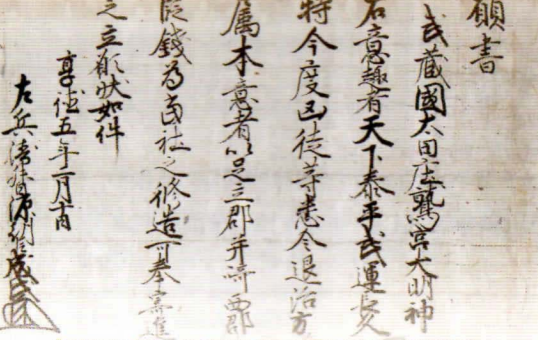 願書
武蔵國太田庄鷲宮大明神
右意趣者天下泰平武運長久
特今度凶徒等悉令退治方
属本意者以足立郡并崎西郡
段錢為当社之修造可奉寄進
之立願状如件
享徳五年二月十日
左兵衛督源朝臣成氏